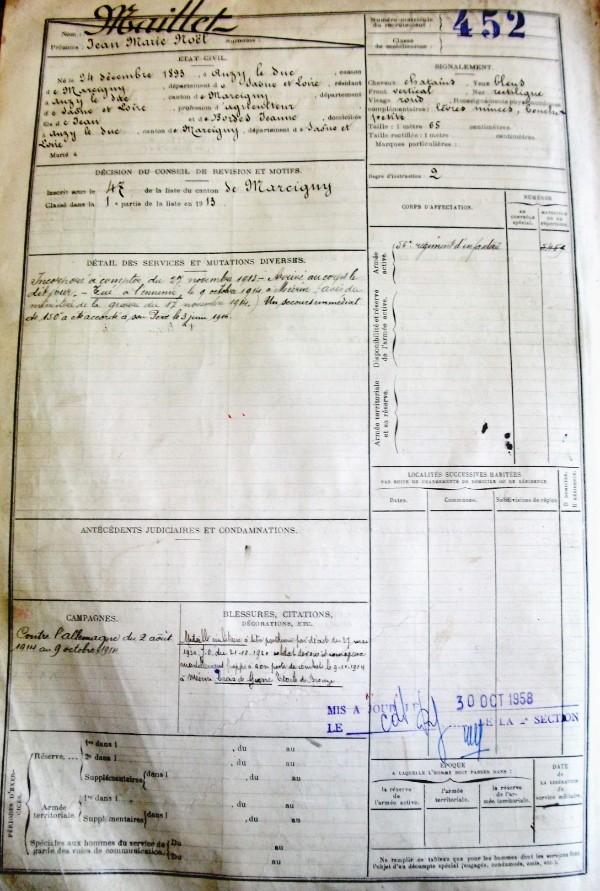 Nom : Maillet
Prénoms : Jean Marie Noël Surnoms :
Numéro matricule du recrutement : 452
Classe de mobilisation :
ÉTAT CIVIL.
Né le 24 décembre 1893, à Anzy le Duc, canton
de Marcigny, département d Saône et Loire, résidant
à Anzy le Duc, canton de Marcigny, département
de Saône et Loire, profession d'agriculteur
fils de Jean et de Jeanne, domiciliés
à Anzy le Duc, canton de Marcigny, département de Saône et
Loire
Marié à
SIGNALEMENT.
Cheveux chatains Yeux bleus
Front vertical Nez rectiligne
Visage rond Renseignements physionomiques
complémentaires : lèvres minces,
Taille : 1 mètre 65 centimètres.
Taille rectifiée : 1 mètre centimètres.
Marques particulières :
Degré d'instruction : 2
DÉCISION DU CONSEIL DE REVISION ET MOTIFS.
Inscrit sous le n° 47 de la liste du canton de Marcigny
Classé dans la 1e partie de la liste en 1913.
DÉTAIL DES SERVICES ET MUTATIONS DIVERSES.
Incorporé à compter du 27 novembre 1913 - Arrivé au corps le
dit jour. - Tué à l'ennemi le 9 octobre 1914 à (avis du
ministère de la guerre du 17 novembre 1914.) Un secours immédiat
de 150 a été accordé à son Père le 3 juin 1916.
CORPS D'AFFECTATION.
NUMÉROS
AU CONTRÔLE SPÉCIAL.
MATRICULE OU AU RÉPERTOIRE.
Armée active.
régiment d'infanterie
Disponibilité et réserve de l'armée active.
Armée territoriale et sa réserve.
LOCALITÉS SUCCESSIVES HABITÉES
PAR SUITE DE CHANGEMENTS DE DOMICILE OU DE RÉSIDENCE.
Dates. Communes. Subdivisions de région. D domicile. R résidence.
ANTÉCÉDENTS JUDICIAIRES ET CONDAMNATIONS.
CAMPAGNES.
Contre l'allemagne du 2 août
1914 au 9 octobre 1914
BLESSURES, CITATIONS, DÉCORATIONS, ETC.
Médaille militaire à titre posthume par décret du
1920 J.O. du soldat
mortellement frappé à son poste de combat le 9.10.1914
à Croix de Guerre Etoile de Bronze
MIS A JOUR LE 30 OCT 1958
LE DE LA 2e SECTION
PÉRIODES D'EXERCICES.
Réserve
1re dans l , du au
2e dans l , du au
Supplémentaires dans l , du au
Armée territoriale.
1re dans l , du au
Supplémentaires dans l , du au
Spéciales aux hommes du service de garde des voies de communication. Du au
Du au
ÉPOQUE
À LAQUELLE L'HOMME DOIT PASSER DANS :
la réserve de l'armée active.
l'armée territoriale.
la réserve de l'armée territoriale.
DATE
DE LA LIBÉRATION
du service militaire.
Ne remplir ce tableau que pour les hommes dont les services font
l'objet d'un décompte spécial (engagés, condamnés, omis, etc.).